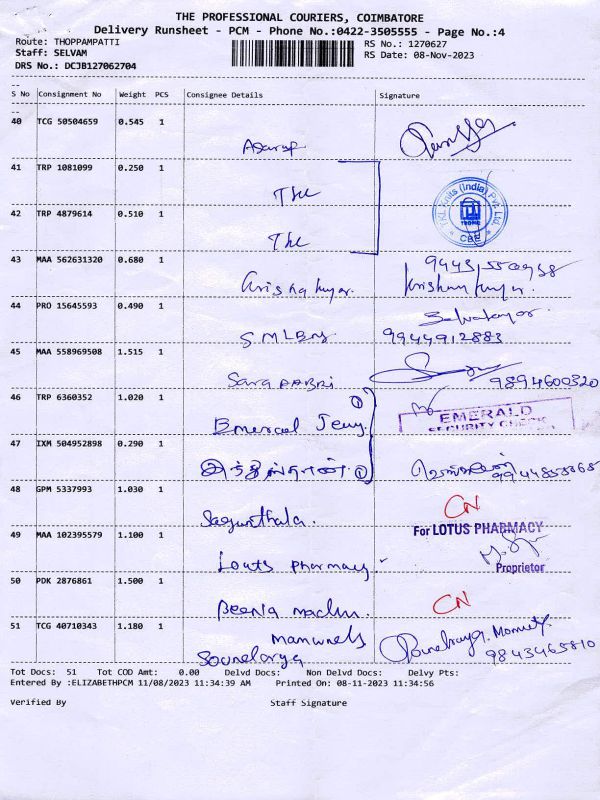 THE PROFESSIONAL COURIERS, COIMBATORE
Delivery Runsheet - PCM - Phone No.:0422-3505555 - Page No.:4
Route: THOPPAMPATTI RS No.: 1270627
Staff: SELVAM RS Date: 08-Nov-2023
DRS No.: DCJB127062704
S No Consignment No Weight PCS Consignee Details Signature
40 TCG 50504659 0.545 1
41 TRP 1081099 0.250 1
TKL Knits (India) Pvt Ltd.
42 TRP 4879614 0.510 1
CBE
43 MAA 562631320 0.680 1
Krishna Kumar.
44 PRO 15645593 0.490 1
SMLBM 9944912883
45 MAA 558969508 1.515 1
9894600320
46 TRP 6360352 1.020 1
EMERALD
SECURITY CHECK
47 IXM 504952898 0.290 1
48 GPM 5337993 1.030 1 CN
Sagunthala.
For LOTUS PHARMACY
49 MAA 102395579 1.100 1
Louts Pharmacy
Proprietor
50 PDK 2876861 1.500 1
Beena CN
51 TCG 40710343 1.180 1
Soundarya 9843465810
Tot Docs: 51 Tot COD Amt: 0.00 Delvd Docs: Non Delvd Docs: Delvy Pts:
Entered By :ELIZABETHPCM 11/08/2023 11:34:39 AM Printed On: 08-11-2023 11:34:56
Verified By Staff Signature